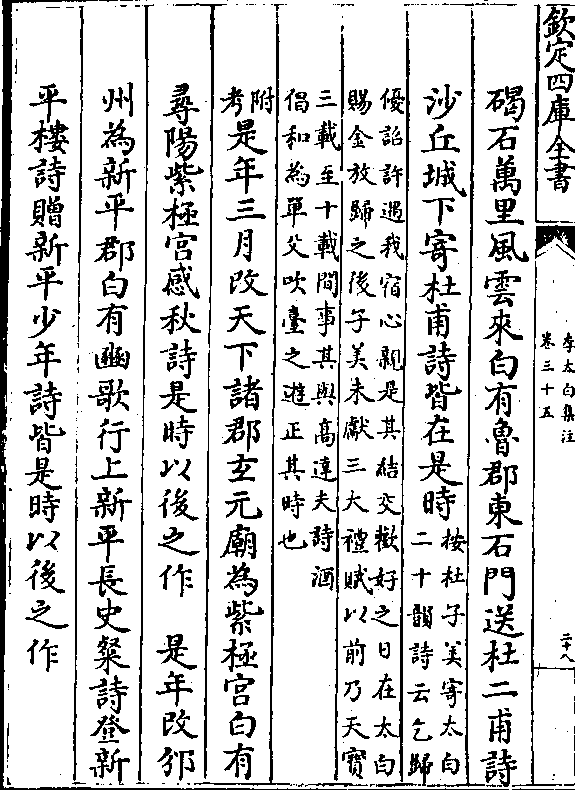 欽定四庫全書
李太白集注
卷三十五
二十八
碣石萬里風雲來白有魯郡東石門送杜二甫詩
沙丘城下寄杜甫詩皆在是時
按杜子美寄太白
二十韻詩云乞歸
優詔許遇我宿心親是其結交歡好之日在太白
賜金放歸之後子美未獻三大禮賦以前乃天寶
三載至十載間事其與高達夫詩酒
倡和為單父吹臺之遊正其時也
附考
是年三月改天下諸郡玄元廟為紫極宮白有
尋陽紫極宮感秋詩是時以後之作　是年改邠
州為新平郡白有豳歌行上新平長史粲詩登新
平樓詩贈新平少年詩皆是時以後之作